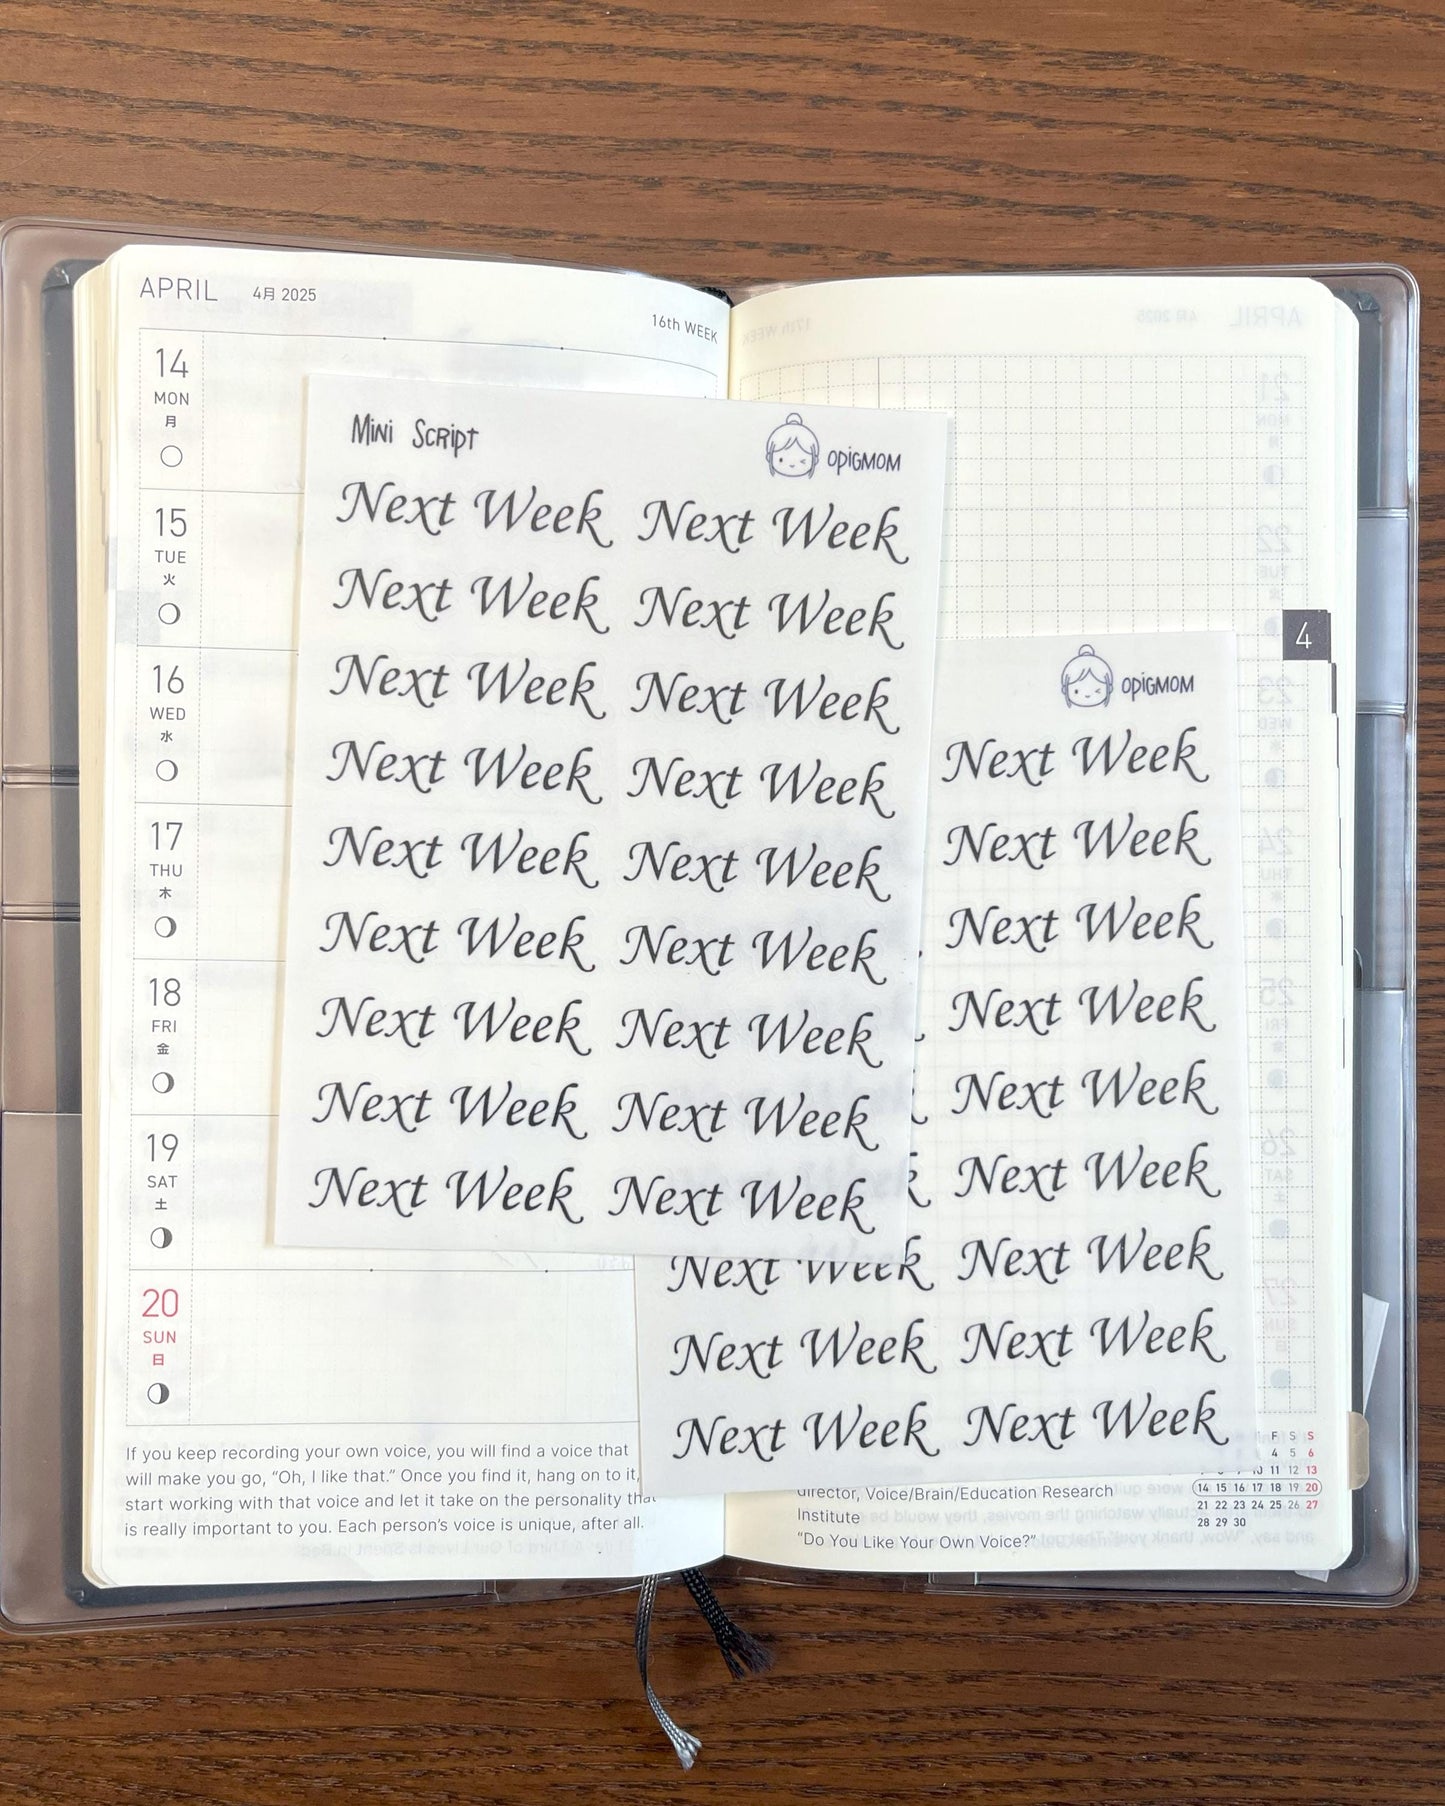 APRIL 4月 2025
16th WEEK
14
MON
月
15
TUE
火
16
WED
水
17
THU
木
18
FRI
金
19
SAT
土
20
SUN
日
If you keep recording your own voice, you will find a voice that
will make you go, “Oh, I like that.” Once you find it, hang on to it,
start working with that voice and let it take on the personality that
is really important to you. Each person’s voice is unique, after all.
Mini Script
OPIGMOM
Next Week Next Week
Next Week Next Week
Next Week Next Week
Next Week Next Week
Next Week Next Week
Next Week Next Week
Next Week Next Week
Next Week Next Week
Next Week Next Week
OPIGMOM
Next Week
Next Week
Next Week
Next Week
Next Week
Next Week
Next Week Next Week
Next Week Next Week
Next Week Next Week
4
director, Voice/Brain/Education Research
Institute
“Do You Like Your Own Voice?”
F S S
4 5 6
10 11 12 13
14 15 16 17 18 19 20
21 22 23 24 25 26 27
28 29 30